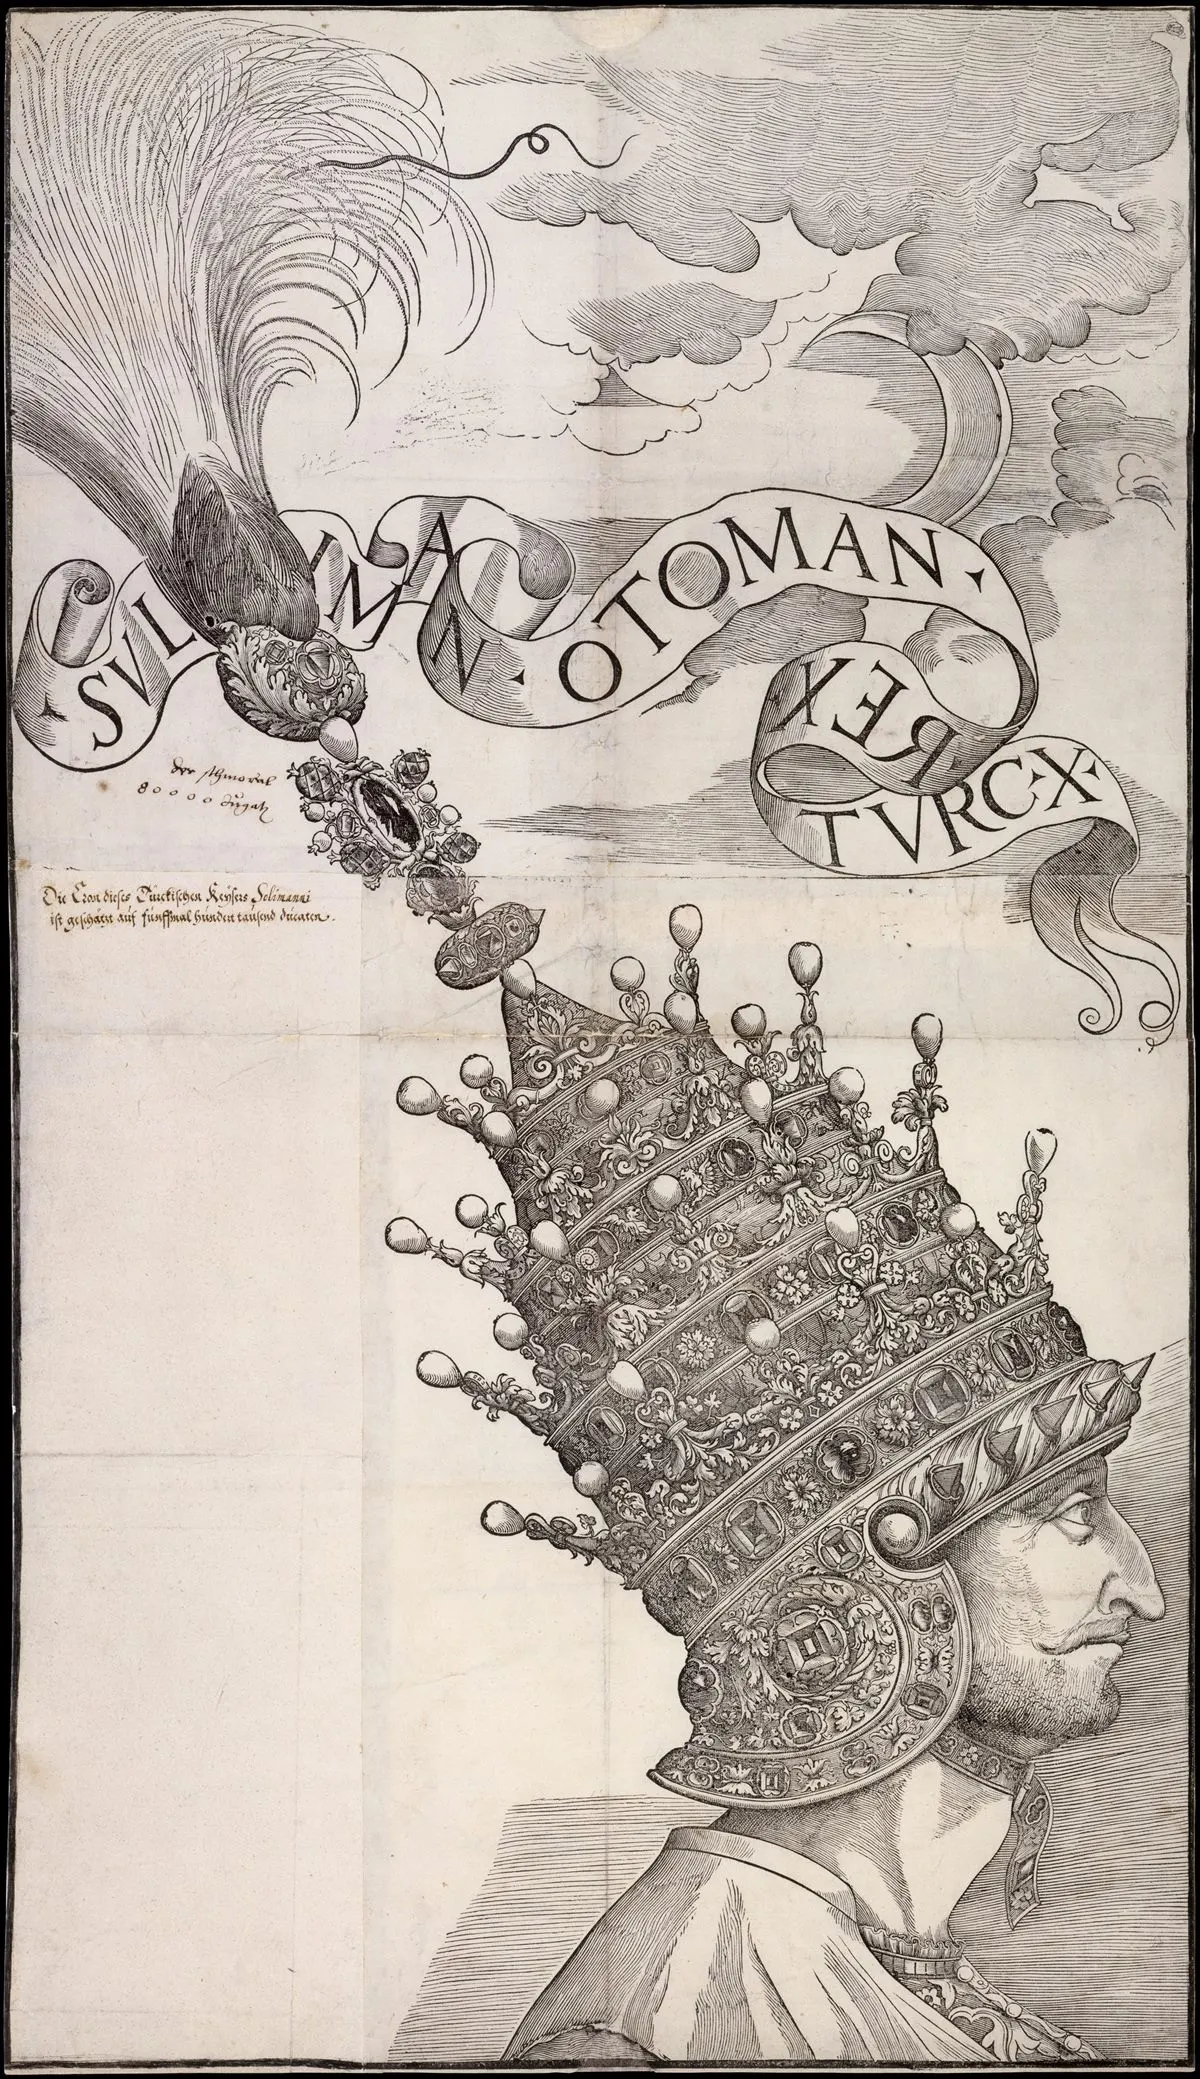 · SVLIMAN · OTOMAN ·
REX
TVRC · X ·
der
80000 dugatz
Die Cron dieses Türckischen Keysers Solimanni
ist geschätzt auf fünffmal hundert tausend ducaten.